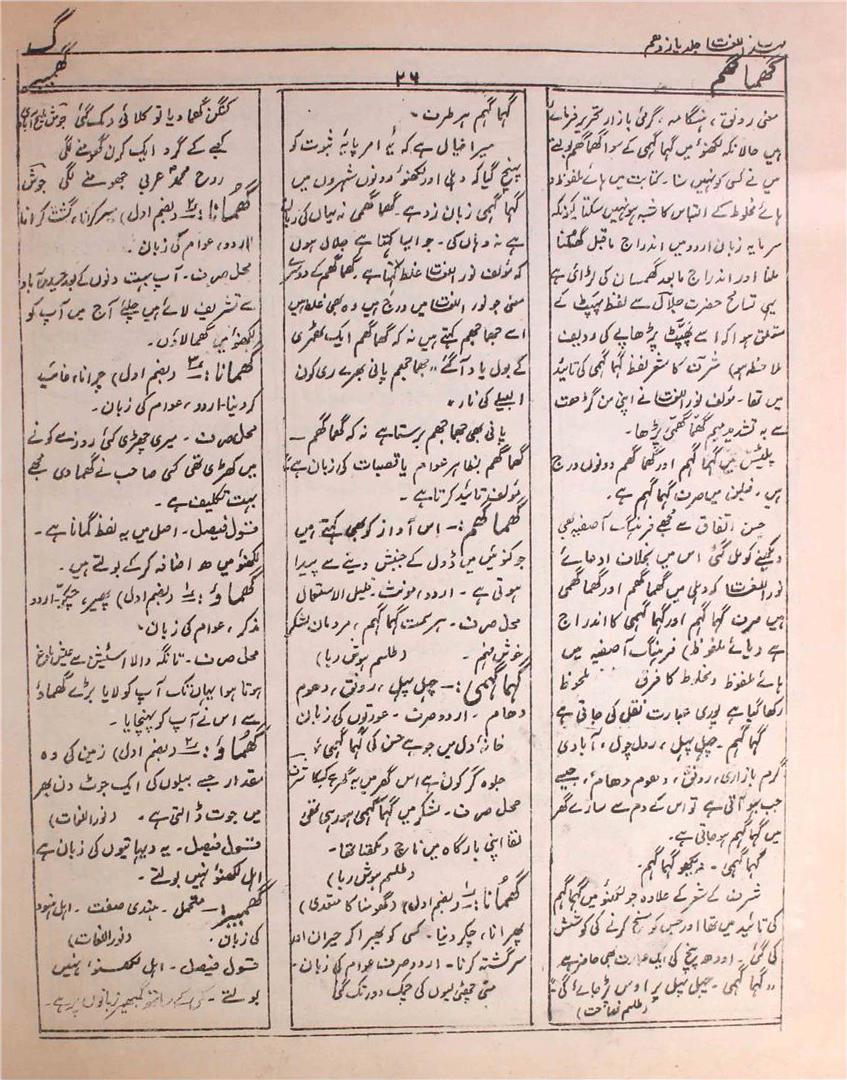 مہذب اللغات جلد یازدهم
گ
گھما گھم
۲۶
گھمبیر
معنی رونق، ہنگامہ، گرمئ بازار تحریر فرمائے
ہیں حالانکہ لکھنؤ میں گہما گہمی کے سوا گھما گھم بولتے
میں نے کسی کو نہیں سنا۔ کتابت میں ہائے ملفوظ و
ہائے مخلوط کے التباس کا شبہ ہو نہیں سکتا کیونکہ
سرمایہ زبان اردو میں اندراج ماقبل گھمکنا
ملنا اور اندراج مابعد گھمسان کی لڑائی ہے
یہی تسامح حضرت جلالؔ سے لفظ
متعلق ہوا کہ اسے پڑھا پے کی ردیف
ملاحظہ ہو) شرفؔ کا شعر لفظ گہما گہمی کی تائید
میں تھا۔ مؤلف نور اللغات نے اپنی من گڑھت
سے بہ تشدید میم گھمّا گھمّی پڑھا۔
پلیٹس میں گہما گہم اور گھما گھم دونوں درج
ہیں، فیلن میں صرف گہما گہم ہے۔
حسن اتفاق سے مجھے فرہنگ آصفیہ بھی
دیکھنے کو مل گئی اس میں بخلاف ادعائے
نور اللغات کہ دہلی میں گھما گھم اور گھما گھمی
ہیں صرف گہما گہم اور گہما گہمی کا اندراج
ہے (بہائے ملفوظ) فرہنگ آصفیہ میں
ہائے ملفوظ و مخلوط کا فرق ملحوظ
رکھا گیا ہے پوری عبارت نقل کی جاتی ہے
گہما گہم۔ چہل پہل، رول چول، آبادی
گرم بازاری، رونق، دھوم دھام، جیسے
جب بہو آتی ہے تو اس کے دم سے سارے گھر
میں گہما گہم ہو جاتی ہے۔
گہما گہمی۔ دیکھو گہما گہم۔
شرفؔ کے شعر کے علاوہ جو لکھنؤ میں گہما گہم
کی تائید میں تھا اور جس کو مسخ کرنے کی کوشش
کی گئی۔ اودھ پنچ کی ایک عبارت بھی حاضر ہے
"گہما گہمی۔ چہل پہل پر اوس پڑ جائے گی"
(طلسم فصاحت)
گہما گہم ہر طرف۔
میرا خیال ہے کہ یہ امر پایۂ ثبوت کو
پہنچ گیا کہ دہلی اور لکھنؤ دونوں شہروں میں
گہما گہمی زبان زد ہے۔ گھما گھمی نہ یہاں کی زبان
ہے نہ وہاں کی۔ جو ایسا کہتا ہے جلال ہوں
کہ مؤلف نور اللغات غلط کہتا ہے۔ گھما گھم کے دوسرے
معنی جو نور اللغات میں درج ہیں وہ بھی غلط ہیں
اسے جھما جھم کہتے ہیں نہ کہ گھما گھم ایک ٹھمری
کے بول یاد آگئے "جھما جھم پانی بھرے ری کون
البیلے کی نار"
پانی بھی جھما جھم برستا ہے نہ کہ گھما گھم۔
گھما گھم بظاہر عوام یا قصبات کی زبان ہے
مؤلف تائید کرتا ہے۔
گھما گھم:۔ اس آواز کو بھی کہتے ہیں
جو کنوئیں میں ڈول کے جنبش دینے سے پیدا
ہوتی ہے۔ اردو، مونث۔ قلیل الاستعمال
محل صرف۔ ہر سمت گہما گہم، مردمان لشکر
خوش و خرم۔ (طلسم ہوش ربا)
گہما گہمی:۔ چہل پہل، رونق، دھوم
دھام۔ اردو صرف۔ عورتوں کی زبان
خانۂ دل میں جو ہے حسن کی گہما گہمی
جلوہ گر کون ہے اس گھر میں یہ گھر ہے کس کا شرفؔ
محل صرف۔ لشکر میں گہما گہمی ہو رہی تھی
لقا اپنی بارگاہ میں ناچ دیکھتا تھا۔
(طلسم ہوش ربا)
گھُمانا:۔ ۱؎ (بضم اول) (گھومنا کا متعدی)
پھرانا، چکر دینا۔ کسی کو پھیرا کر حیران اور
سرگشتہ کرنا۔ اردو صرف عوام کی زبان۔
چمپئی لبوں کی چمک دور تک گئی
کنگن گھما دیا تو کلائی دمک گئی جوشؔ ملیح آبادی
کعبے کے گرد ایک کرن گھومنے لگی
روح محمدؐ عربی جھومنے لگی جوشؔ
گھُمانا:۔ ۲؎ (بضم اول) سیر کرنا، گشت کرانا
اردو، عوام کی زبان۔
محل صرف۔ آپ بہت دنوں کے بعد حیدرآباد
سے تشریف لائے ہیں چلئے آج میں آپ کو
لکھنؤ میں گھما لاؤں۔
گھمانا:۔ ۳؎ (بضم اول) چرانا، غائب
کر دینا۔ اردو، عوام کی زبان۔
محل صرف۔ میری چھڑی کئی روز سے کونے
میں کھڑی تھی کسی صاحب نے گھما دی مجھے
بہت تکلیف ہے۔
قول فیصل۔ اصل میں یہ لفظ گمانا ہے۔
لکھنؤ میں ھ اضافہ کر کے بولتے ہیں۔
گھماؤ:۔ ۱؎ (بضم اول) پھیر، چکر۔ اردو
مذکر، عوام کی زبان۔
محل صرف۔ تانگہ والا اسٹیشن سے عیش باغ
ہوتا ہوا یہاں تک آپ کو لایا بڑے گھماؤ
سے اس نے آپ کو پہنچایا۔
گھُماؤ:۔ ۲؎ (بضم اول) زمین کی وہ
مقدار جسے بیلوں کی ایک جوٹ دن بھر
میں جوت ڈالتی ہے۔ (نور اللغات)
قول فیصل۔ یہ دیہاتیوں کی زبان ہے
اہل لکھنؤ نہیں بولتے۔
گھمبیر:۔ متحمل۔ ہندی صفت۔ اہل ہنود
کی زبان۔ (نور اللغات)
قول فیصل۔ اہل لکھنؤ نہیں
بولتے۔ گمبھیر زبانوں پر ہے۔